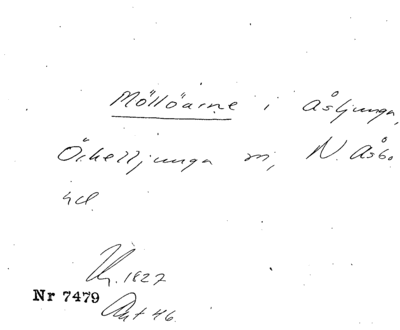 Möllöarne i Åsljunga,
Örkelljunga sn, N. Åsbo
hd.
Ur. 1827
Nr 7479
Akt 46.